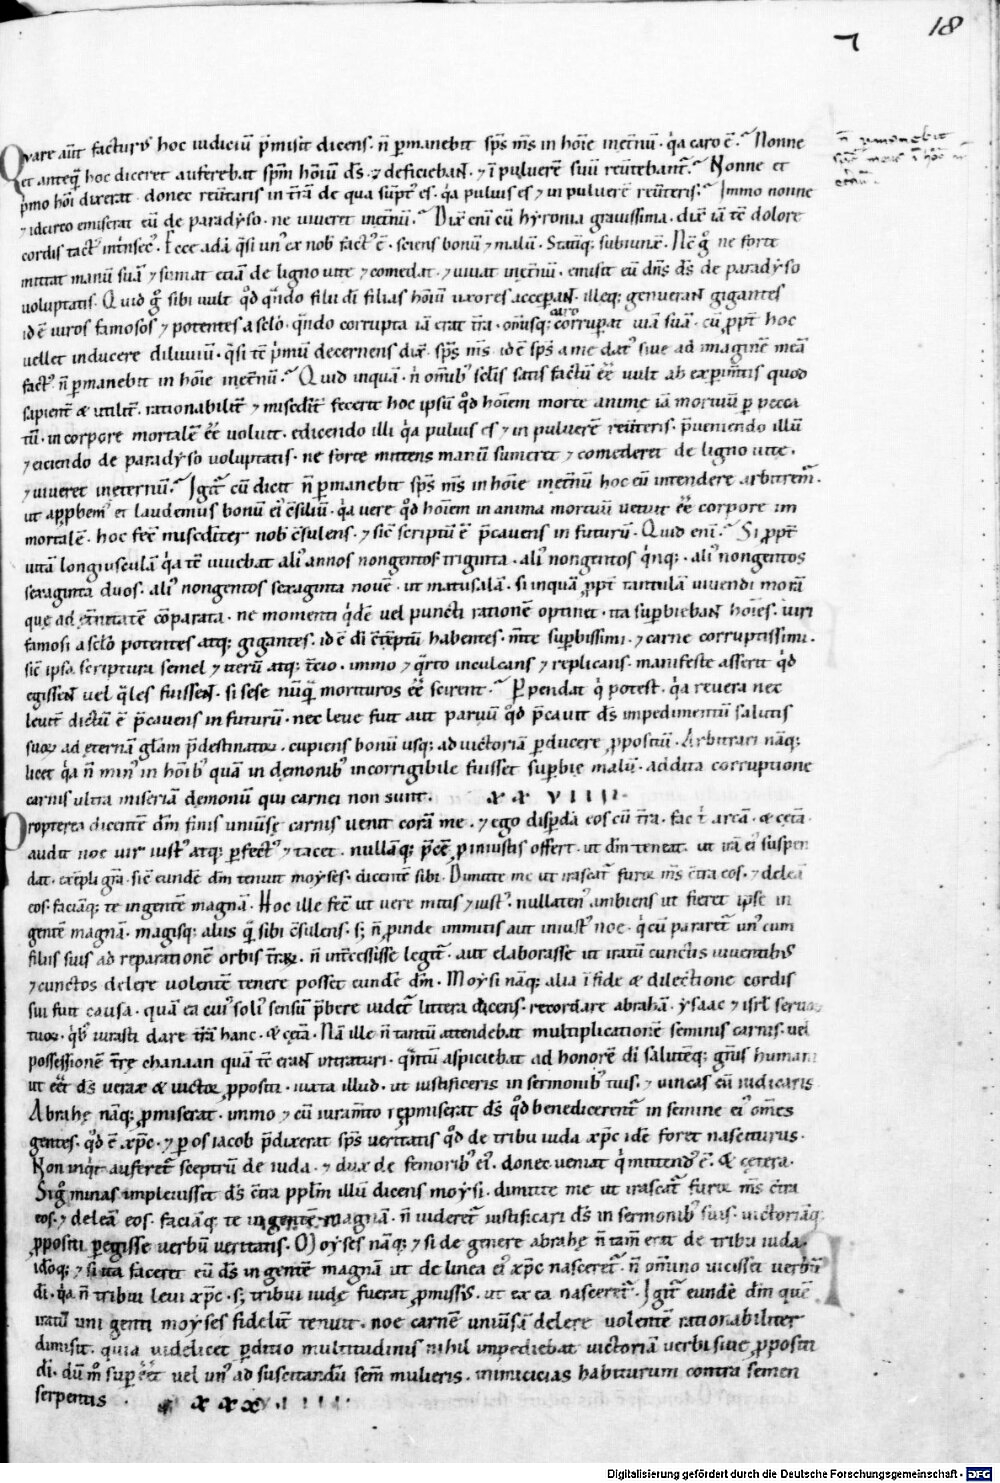 18
7
Quare aut̄ facturus hoc iudiciū p̄misit dicens· n̄ p̄manebit sp̄s m̄s in hoīe inęt̄nū· q̓a caro ē? Nonne
et anteq̄ hoc diceret auferebat sp̄m hoīū d̄s· ⁊ deficiebant· ⁊ ī puluerē suū reūtebant̄? Nonne et
p̄mo hoī dixerat· donec reūtaris in t̄rā de qua sūpt' es· q̓a puluis es ⁊ in puluerē reūteris? Immo nonne
⁊ idcirco emiserat eū de paradyso· ne viueret inęt̄nū? Dix̄ enī cū hyronia grauissima· dix̄ iā tē dolore
cordis tact' int̓nsec'· Ecce adā q̓si un' ex nob̄ fact' ē· sciens bonū ⁊ malū· Statīq; subiunx̄· Nc̄ g̊ ne forte
mittat manū suā ⁊ sumat etiā de ligno uitę ⁊ comedat· ⁊ uiuat inęt̄nū· emisit eū dn̄s d̄s de paradyso
voluptatis· Quid g̊ sibi uult q̊d q̓ndo filii dī filias hoīū uxores acceperant· illęq; genuerant gigantes
id ē viros famosos ⁊ potentes a sclo· q̓ndo corrupta iā erat t̄ra· om̄isq; caro corruperat viā suā· cū ꝓpt̄ hoc
uellet inducere diluuiū· q̓si tē p̓mū decernens dix̄· sp̄s m̄s· id ē sp̄s a me dat' siue ad imaginē meā
fact' n̄ p̄manebit in hoīe inęt̄nū? Quid inquā· n̓ om̄ib' sclis satis factū eē uult ab exp̄im̄tis quod
sapient̄ & utilit̄· rationabilit̄ ⁊ misedit̄ fecerit hoc ipsū q̊d hoīem morte animę iā mortuū p̄ pecca
tū· in corpore mortalē eē uoluit· edicendo illi q̓a puluis es ⁊ in puluerē reūteris· p̄ueniendo illū
⁊ eiciendo de paradyso voluptatis· ne forte mittens manū sumeret ⁊ comederet de ligno uitę·
⁊ uiueret ineternū? Igit̄ cū dicit n̄ p̄manebit sp̄s m̄s in hoīe inęt̄nū hoc eū intendere arbitrem̄·
ut app̄bem' et laudemus bonū ei' c̄siliū· q̓a uere q̊d hoīem in anima mortuū uetuit eē corpore im
mortalē· hoc fec̄ misedit̄er nob̄ c̄sulens· ⁊ sic̄ scriptū ē p̄cauens in futurū· Quid enī? Si ꝓpt̄
uitā longiusculā q̓a tē uiuebat ali' annos nongentos triginta· ali' nongentos q̓nq;· ali' nongentos
sexaginta duos· ali' nongentos sexaginta nouē· ut matusalā· si inquā ꝓpt̄ tantulā uiuendi morā
quę ad ęt̄nitatē cōparata· ne momenti q̓dē uel puncti rationē optinet· ita supbiebant hoīes· uiri
famosi a sclo potentes atq; gigantes· id ē dī c̄teptū habentes· m̄te supbissimi· ⁊ carne corruptissimi·
sic̄ ipsa scriptura semel ⁊ iterū atq; t̄cio· immo ⁊ q̓rto inculcans ⁊ replicans· manifeste asserit q̊d
egissent uel q̓les fuissent· si sese nūq̄ morituros eē scirent? Perpendat q̓ potest· q̓a reuera nec
leuit̄ dictū ē p̄cauens in futurū· nec leue fuit aut paruū q̊d p̄cauit d̄s impedimentū salutis
suoꝝ ad ęternā gl̄am p̄destinatoꝝ· cupiens bonū usq; ad uictoriā p̄ducere ꝓpositū· Arbitrari nāq;
licet q̓a n̄ min' in hoīb' quā in demonib' incorrigibile fuisset supbię malū· addita corruptione
carnis ultra miseriā demonū qui carnei non sunt·   xxviiii·
Propterea dicentē dm̄ finis uniuersę carnis uenit corā me· ⁊ ego disperdā eos cū t̄ra· fac t̓ arcā· & cęt̄a·
audit noe uir iust' atq; p̄fect' ⁊ tacet· nullāq; p̄cē p iniustis offert· ut dm̄ teneat· ut irā ei' suspen
dat· exēpli gr̄a· sic̄ eundē dm̄ tenuit moyses· dicentē sibi· Dimitte me ut irascat̄ furor m̄s c̄tra eos· ⁊ deleā
eos· faciāq; te in gentē magnā· Hoc ille fec̄ ut uere mitis ⁊ iust'· nullaten' ambiens ut fieret ipse in
gentē magnā· magisq; aliis q̄ sibi c̄sulens· s; n̄ ꝓinde inmitis aut iniust' noe· q̓ cū pararet̄ un' cum
filiis suis ad reparationē orbis t̄raꝝ· n̄ int̄cessisse legit̄· aut elaborasse ut iratū cunctis uiuentibus
⁊ cunctos delere uolentē tenere posset eundē dm̄· Moysi nāq; alia ī fide & dilectione cordis
sui fuit causa· quā ea cui' soli' sensū p̄bere uidet̄ littera dicens· recordare abrahā· ysaac ⁊ isrl̄ seruoꝝ
tuoꝝ· q̓b' iurasti dare t̄rā hanc· & cęt̄a· Nā ille n̄ tantū attendebat multiplicationē seminis carnis· uel
possessionē t̄rę chanaan quā tē erant intraturi· q̓ntū aspiciebat ad honorē dī salutēq; gn̄is humani
ut eēt d̄s uerax & uictor ꝓpositi· iuxta illud· ut iustificeris in sermonib' tuis· ⁊ uincas cū iudicaris
Abrahę nāq; p̄miserat· immo ⁊ cū iuram̄to rep̄miserat d̄s q̊d benedicerent̄ in semine ei' om̄es
gentes· q̊d ē xp̄c· ⁊ p̄ os iacob p̄dixerat sp̄s ueritatis q̊d de tribu iuda xp̄c idē foret nasciturus·
Non inq̓t auferet̄ sceptrū de iuda· ⁊ dux de femorib' ei'· donec ueniat q̓ mittend' ē· & cętera·
Si g̊ minas impleuisset d̄s c̄tra ppl̄m illū dicens moysi· dimitte me ut irascat̄ furor m̄s c̄tra
eos· ⁊ deleā eos· faciāq; te in gentē magnā· n̄ uideret̄ iustificari d̄s in sermonib' suis· uictoriāq;
ꝓpositi p̄egisse uerbū ueritatis· Moyses nāq; ⁊ si de genere abrahę n̄ tam̄ erat de tribu iuda·
idōq; ⁊ si ita faceret eū d̄s in gentē magnā ut de linea ei' xp̄c nasceret̄· n̄ om̄ino uicisset uerbū
dī· q̓a n̄ tribui leui xp̄c· s; tribui iudę fuerat ꝓmissus· ut ex ea nasceret̄· Igit̄ eundē dm̄ quē
iratū uni genti moyses fidelit̄ tenuit· noe carnē uniūsā delere uolentē rationabiliter
dimisit· quia uidelicet p̄ditio multitudinis nihil impediebat uictoriā uerbi siue ꝓpositi
dī· dū m̊ sup eēt uel un' ad suscitandū sem̄ mulieris· inimicicias habiturum contra semen
serpentis·   xxx
Digitalisierung gefördert durch die Deutsche Forschungsgemeinschaft - DFG